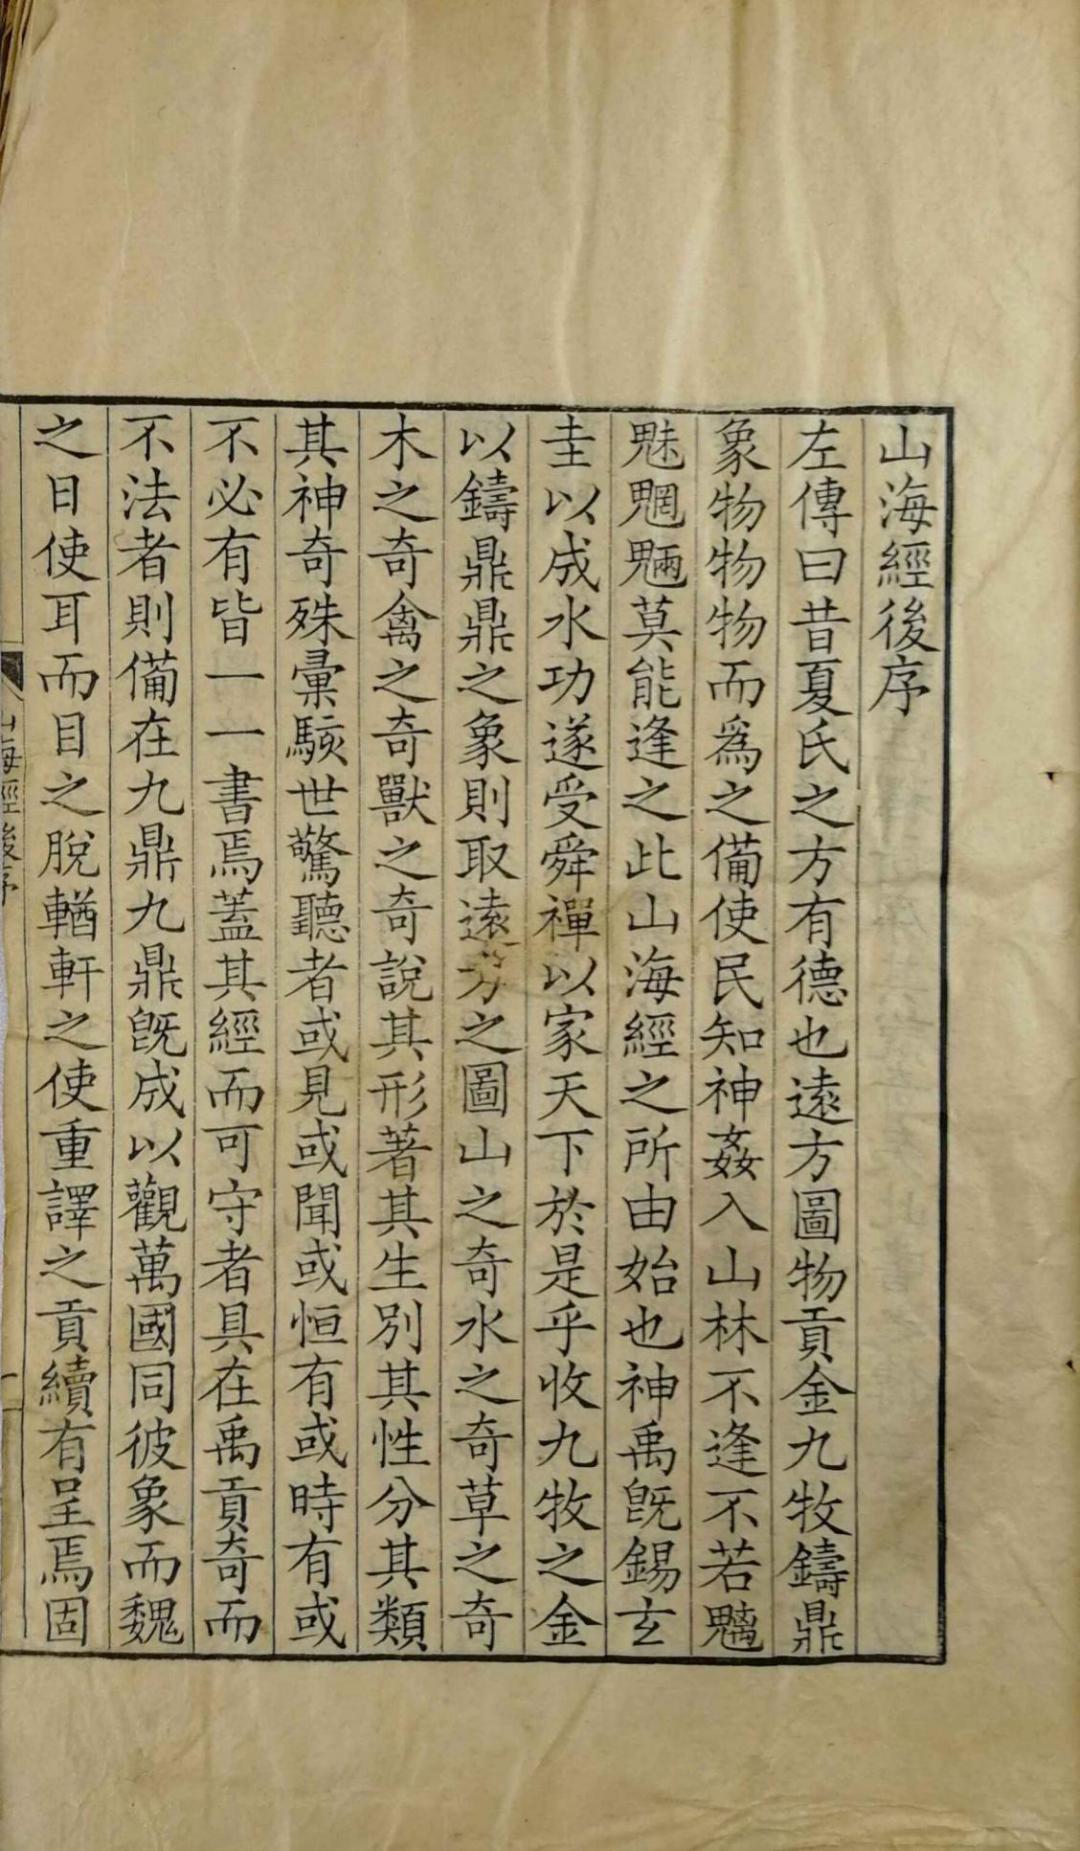 山海經後序
左傳曰昔夏氏之方有德也遠方圖物貢金九牧鑄鼎
象物物物而爲之備使民知神姦入山林不逢不若魑
魅魍魎莫能逢之此山海經之所由始也神禹旣錫玄
圭以成水功遂受舜禪以家天下於是乎收九牧之金
以鑄鼎鼎之象則取遠方之圖山之奇水之奇草之奇
木之奇禽之奇獸之奇說其形著其生別其性分其類
其神奇殊彙駭世驚聽者或見或聞或恒有或時有或
不必有皆一一書焉蓋其經而可守者具在禹貢奇而
不法者則備在九鼎九鼎旣成以觀萬國同彼象而魏
之日使耳而目之脫輶軒之使重譯之貢續有呈焉固
山海經後序